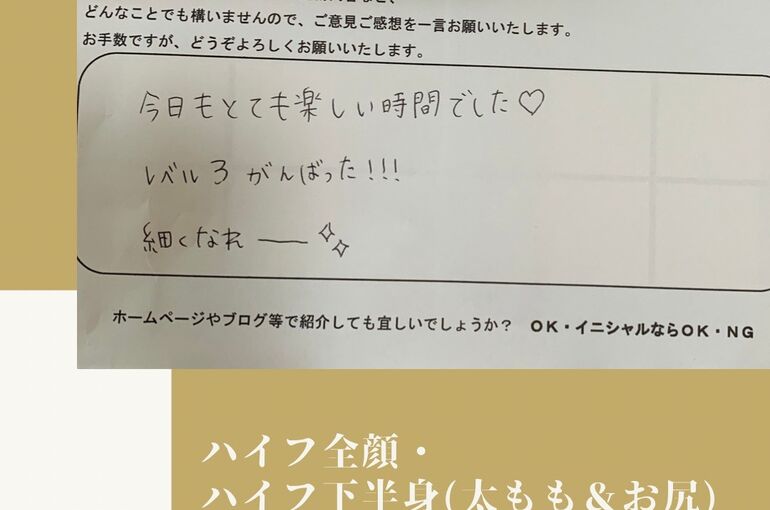 どんなことでも構いませんので、ご意見ご感想を一言お願いいたします。
お手数ですが、どうぞよろしくお願いいたします。
今日もとても楽しい時間でした♡
レベル3 がんばった!!!
細くなれ ――
ホームページやブログ等で紹介しても宜しいでしょうか？　OK・イニシャルならOK・NG
ハイフ全顔・
ハイフ下半身(太もも＆お尻)